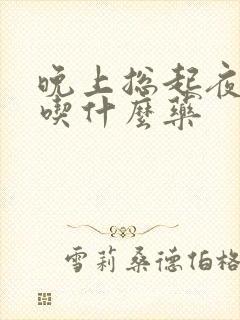 晚上总起夜
喫什麼藥
雪莉桑德伯格